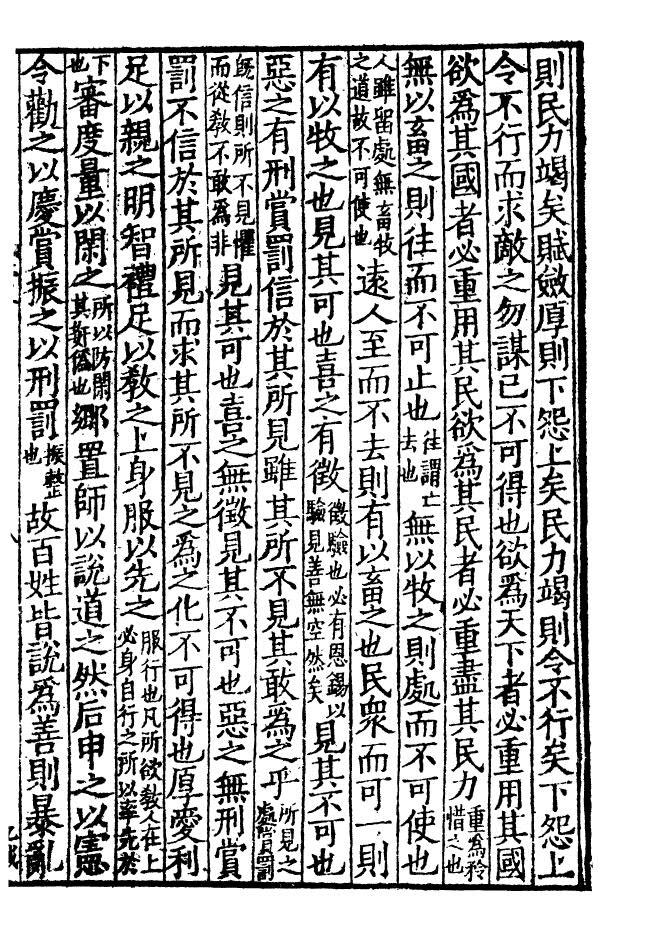 則民力竭矣賦斂厚則下怨上矣民力竭則令不行矣下怨上
令不行而求敵之勿謀已不可得也欲爲天下者必重用其國
欲爲其國者必重用其民欲爲其民者必重盡其民力重爲矜惜之也
無以畜之則往而不可止也往謂亡去也無以牧之則處而不可使也
人雖留處無畜牧之道故不可使也遠人至而不去則有以畜之也民衆而可一則
有以牧之也見其可也喜之有徵徵驗也必有恩錫以驗見善無空然矣見其不可也
惡之有刑賞罰信於其所見雖其所不見其敢爲之乎所見之處賞罰
旣信則所不見懼而從敎不敢爲非見其可也喜之無徵見其不可也惡之無刑賞
罰不信於其所見而求其所不見之爲之化不可得也厚愛利
足以親之明智禮足以敎之上身服以先之服行也凡所欲敎人在上必身自行之所以率先於
下也審度量以閑之所以防閑其奸僞也鄉置師以說道之然后申之以憲
令勸之以慶賞振之以刑罰振整也故百姓皆說爲善則暴亂